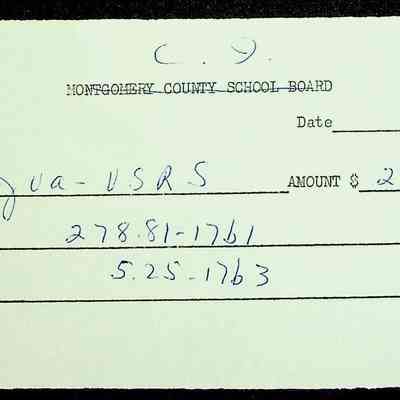 C. I.
MONTGOMERY COUNTY SCHOOL BOARD
Date
Va - VSRS AMOUNT $ 2
278.81-1761
5.25-1763